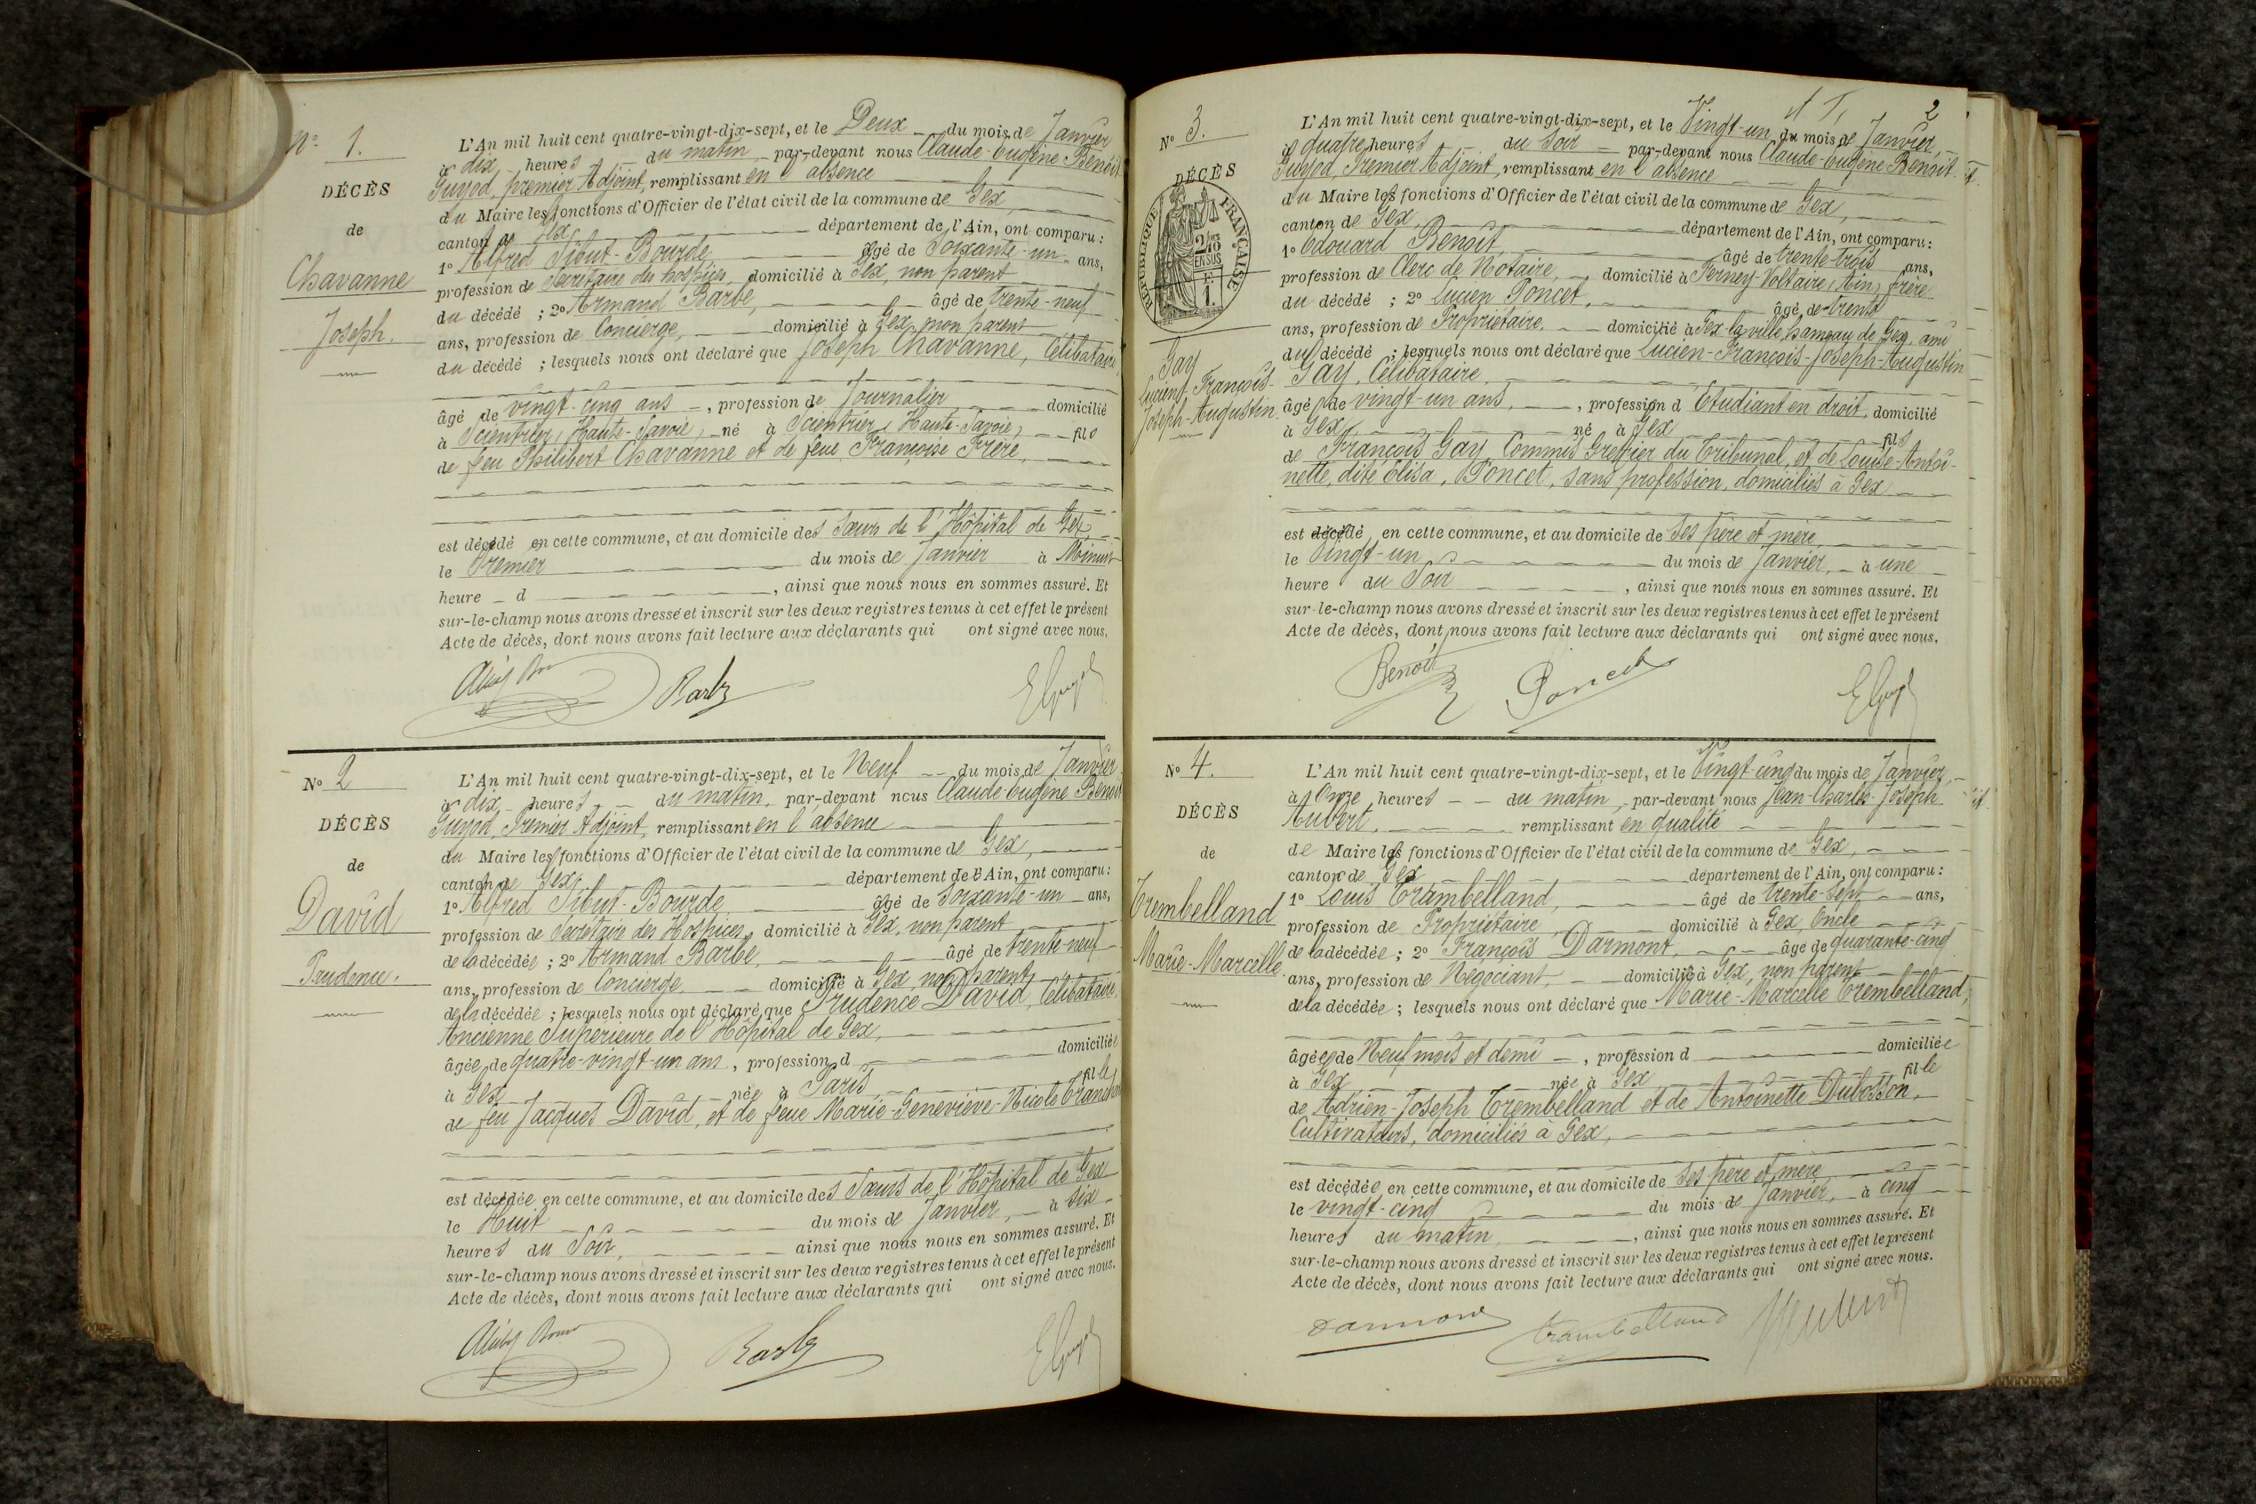 N° 1.
DÉCÈS
de
Chavanne
Joseph.
L'An mil huit cent quatre-vingt-dix-sept, et le Deux du mois de Janvier
à dix heures du matin par-devant nous Claude-Eugène Benoit
Guyod, premier Adjoint, remplissant en l'absence
du Maire les fonctions d'Officier de l'état civil de la commune de Gex,
canton de Gex, département de l'Ain, ont comparu :
1° Alfred Sibut-Bourde âgé de Soixante-un ans,
profession de Secrétaire des hospices, domicilié à Gex, non parent
du décédé ; 2° Armand Barbe, âgé de trente-neuf
ans, profession de Concierge, domicilié à Gex, non parent
du décédé ; lesquels nous ont déclaré que Joseph Chavanne, Célibataire,
âgé de vingt-cinq ans, profession de Journalier domicilié
à Scientrier, Haute-Savoie, né à Scientrier, Haute-Savoie, fils
de feu Philibert Chavanne et de feue Françoise Frère,
est décédé en cette commune, et au domicile des Sœurs de l'Hôpital de Gex,
le Premier du mois de Janvier à Minuit
heure d , ainsi que nous nous en sommes assuré. Et
sur-le-champ nous avons dressé et inscrit sur les deux registres tenus à cet effet le présent
Acte de décès, dont nous avons fait lecture aux déclarants qui ont signé avec nous.
Barbe EGuyod
N° 2
DÉCÈS
de
David
Prudence.
L'An mil huit cent quatre-vingt-dix-sept, et le Neuf du mois de Janvier
à dix heures du matin, par-devant nous Claude-Eugène Benoit
Guyod, Premier Adjoint, remplissant en l'absence
du Maire les fonctions d'Officier de l'état civil de la commune de Gex,
canton de Gex, département de l'Ain, ont comparu :
1° Alfred Sibut-Bourde âgé de Soixante-un ans,
profession de Secrétaire des Hospices, domicilié à Gex, non parent
de la décédée ; 2° Armand Barbe, âgé de trente-neuf
ans, profession de Concierge, domicilié à Gex, non parent
de la décédée ; lesquels nous ont déclaré que Prudence David, Célibataire,
Ancienne Supérieure de l'Hôpital de Gex,
âgée de quatre-vingt-un ans, profession d domiciliée
à Gex née à Paris fille
de feu Jacques David, et de feue Marie-Geneviève-Nicole
est décédée en cette commune, et au domicile des Sœurs de l'Hôpital de Gex
le Huit du mois de Janvier, à six
heures du Soir, ainsi que nous nous en sommes assuré. Et
sur-le-champ nous avons dressé et inscrit sur les deux registres tenus à cet effet le présent
Acte de décès, dont nous avons fait lecture aux déclarants qui ont signé avec nous.
Barbe EGuyod
2
N° 3.
DÉCÈS
RÉPUBLIQUE FRANÇAISE
2/10
EN SUS
E
1.
Gay
Lucien-François-
Joseph-Augustin
L'An mil huit cent quatre-vingt-dix-sept, et le Vingt-un du mois de Janvier,
à quatre heures du Soir par-devant nous Claude-Eugène-Benoit
Guyod, Premier Adjoint, remplissant en l'absence
du Maire les fonctions d'Officier de l'état civil de la commune de Gex,
canton de Gex, département de l'Ain, ont comparu :
1° Edouard Benoit, âgé de trente trois ans,
profession de Clerc de Notaire, domicilié à Ferney-Voltaire, Ain, frère
du décédé ; 2° Lucien Poncet, âgé de trente
ans, profession de Propriétaire, domicilié à Gex-la-ville, hameau de Gex, ami
du décédé ; lesquels nous ont déclaré que Lucien-François-Joseph-Augustin
Gay, Célibataire,
âgé de vingt-un ans, profession d'Etudiant en droit, domicilié
à Gex, né à Gex fils
de François Gay, Commis Greffier du Tribunal, et de Louise-Antoi-
nette, dite Elisa, Poncet, sans profession, domiciliés à Gex
est décédé en cette commune, et au domicile de ses père et mère,
le Vingt-un du mois de Janvier, à une
heure du Soir , ainsi que nous nous en sommes assuré. Et
sur-le-champ nous avons dressé et inscrit sur les deux registres tenus à cet effet le présent
Acte de décès, dont nous avons fait lecture aux déclarants qui ont signé avec nous.
Benoit Poncet EGuyod
N° 4.
DÉCÈS
de
Trembelland
Marie-Marcelle.
L'An mil huit cent quatre-vingt-dix-sept, et le Vingt-cinq du mois de Janvier,
à Onze heures du matin, par-devant nous Jean-Charles-Joseph
Aubert, remplissant en qualité
de Maire les fonctions d'Officier de l'état civil de la commune de Gex,
canton de Gex département de l'Ain, ont comparu :
1° Louis Trambelland, âgé de trente-sept ans,
profession de Propriétaire, domicilié à Gex, Oncle
de la décédée ; 2° François Darmont, âgé de quarante-cinq
ans, profession de Négociant, domicilié à Gex, non parent
de la décédée ; lesquels nous ont déclaré que Marie-Marcelle Trembelland,
âgée de Neuf mois et demi , profession d domiciliée
à Gex née à Gex fille
de Adrien-Joseph Trembelland et de Antoinette Dubosson,
Cultivateurs, domiciliés à Gex,
est décédée en cette commune, et au domicile de ses père et mère
le vingt-cinq du mois de Janvier, à cinq
heures du matin , ainsi que nous nous en sommes assuré. Et
sur-le-champ nous avons dressé et inscrit sur les deux registres tenus à cet effet le présent
Acte de décès, dont nous avons fait lecture aux déclarants qui ont signé avec nous.
Darmont Trambelland